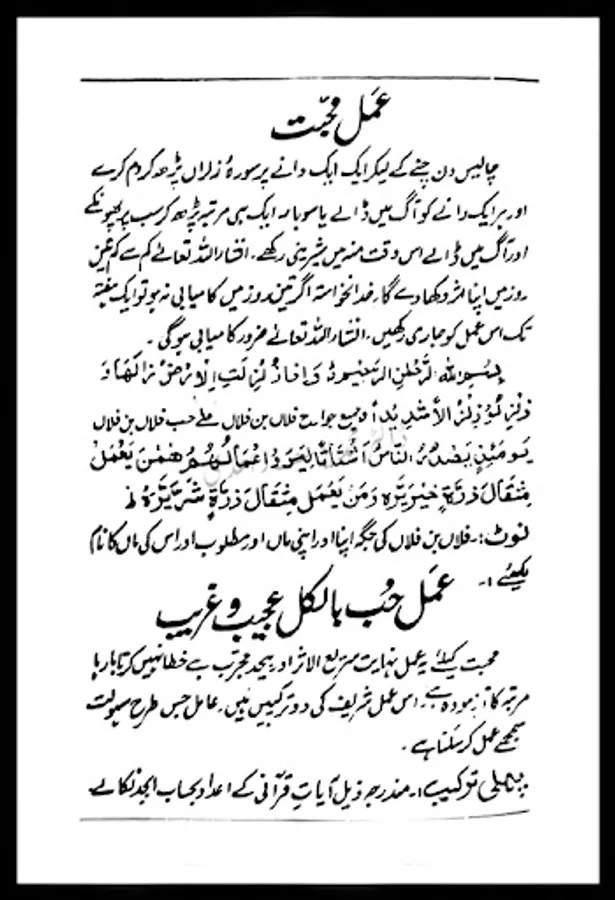 عمل محبت
چالیس دن چنے کے لیکر ایک ایک دانے پر سورۂ زلزال پڑھ کر دم کرے
اور ہر ایک دانے کو آگ میں ڈالے یا سو بار ایک ہی مرتبہ پڑھ کر سب پر پھونکے
اور آگ میں ڈالے اس وقت منہ میں شیرینی رکھے۔ انشاء اللہ تعالےٰ کم سے کم تین
روز میں اپنا اثر دکھا دے گا۔ خدانخواستہ اگر تین روز میں کامیابی نہ ہو تو ایک ہفتہ
تک اس عمل کو جاری رکھیں، انشاء اللہ تعالےٰ ضرور کامیابی ہوگی۔
بسم اللہ الرحمن الرحیم
جمیع جوارح فلاں بن فلاں علےٰ حب فلاں بن فلاں
یَومَئِذٍ یَصدُرُ النَّاسُ اَشتَاتًا لِیُرَوا اَعمَالَهُم فَمَن یَعمَل
مِثقَالَ ذَرَّةٍ خَیرًا یَرَه وَمَن یَعمَل مِثقَالَ ذَرَّةٍ شَرًّا یَرَه ط
نوٹ:۔ فلاں بن فلاں کی جگہ اپنا اور اپنی ماں اور مطلوب اور اس کی ماں کا نام
لیجئے ۱۔
عمل حُب بالکل عجیب و غریب
محبت کیلئے یہ عمل نہایت سریع الاثر اور بیحد مجرب ہے خطا نہیں کرتا بارہا
مرتبہ کا آزمودہ ہے۔ اس عمل شریف کی دو ترکیبیں ہیں۔ عامل جس طرح سہولت
سمجھے عمل کر سکتا ہے۔
پہلی ترکیب:۔ مندرجہ ذیل آیات قرآنی کے اعداد بحساب ابجد نکالے